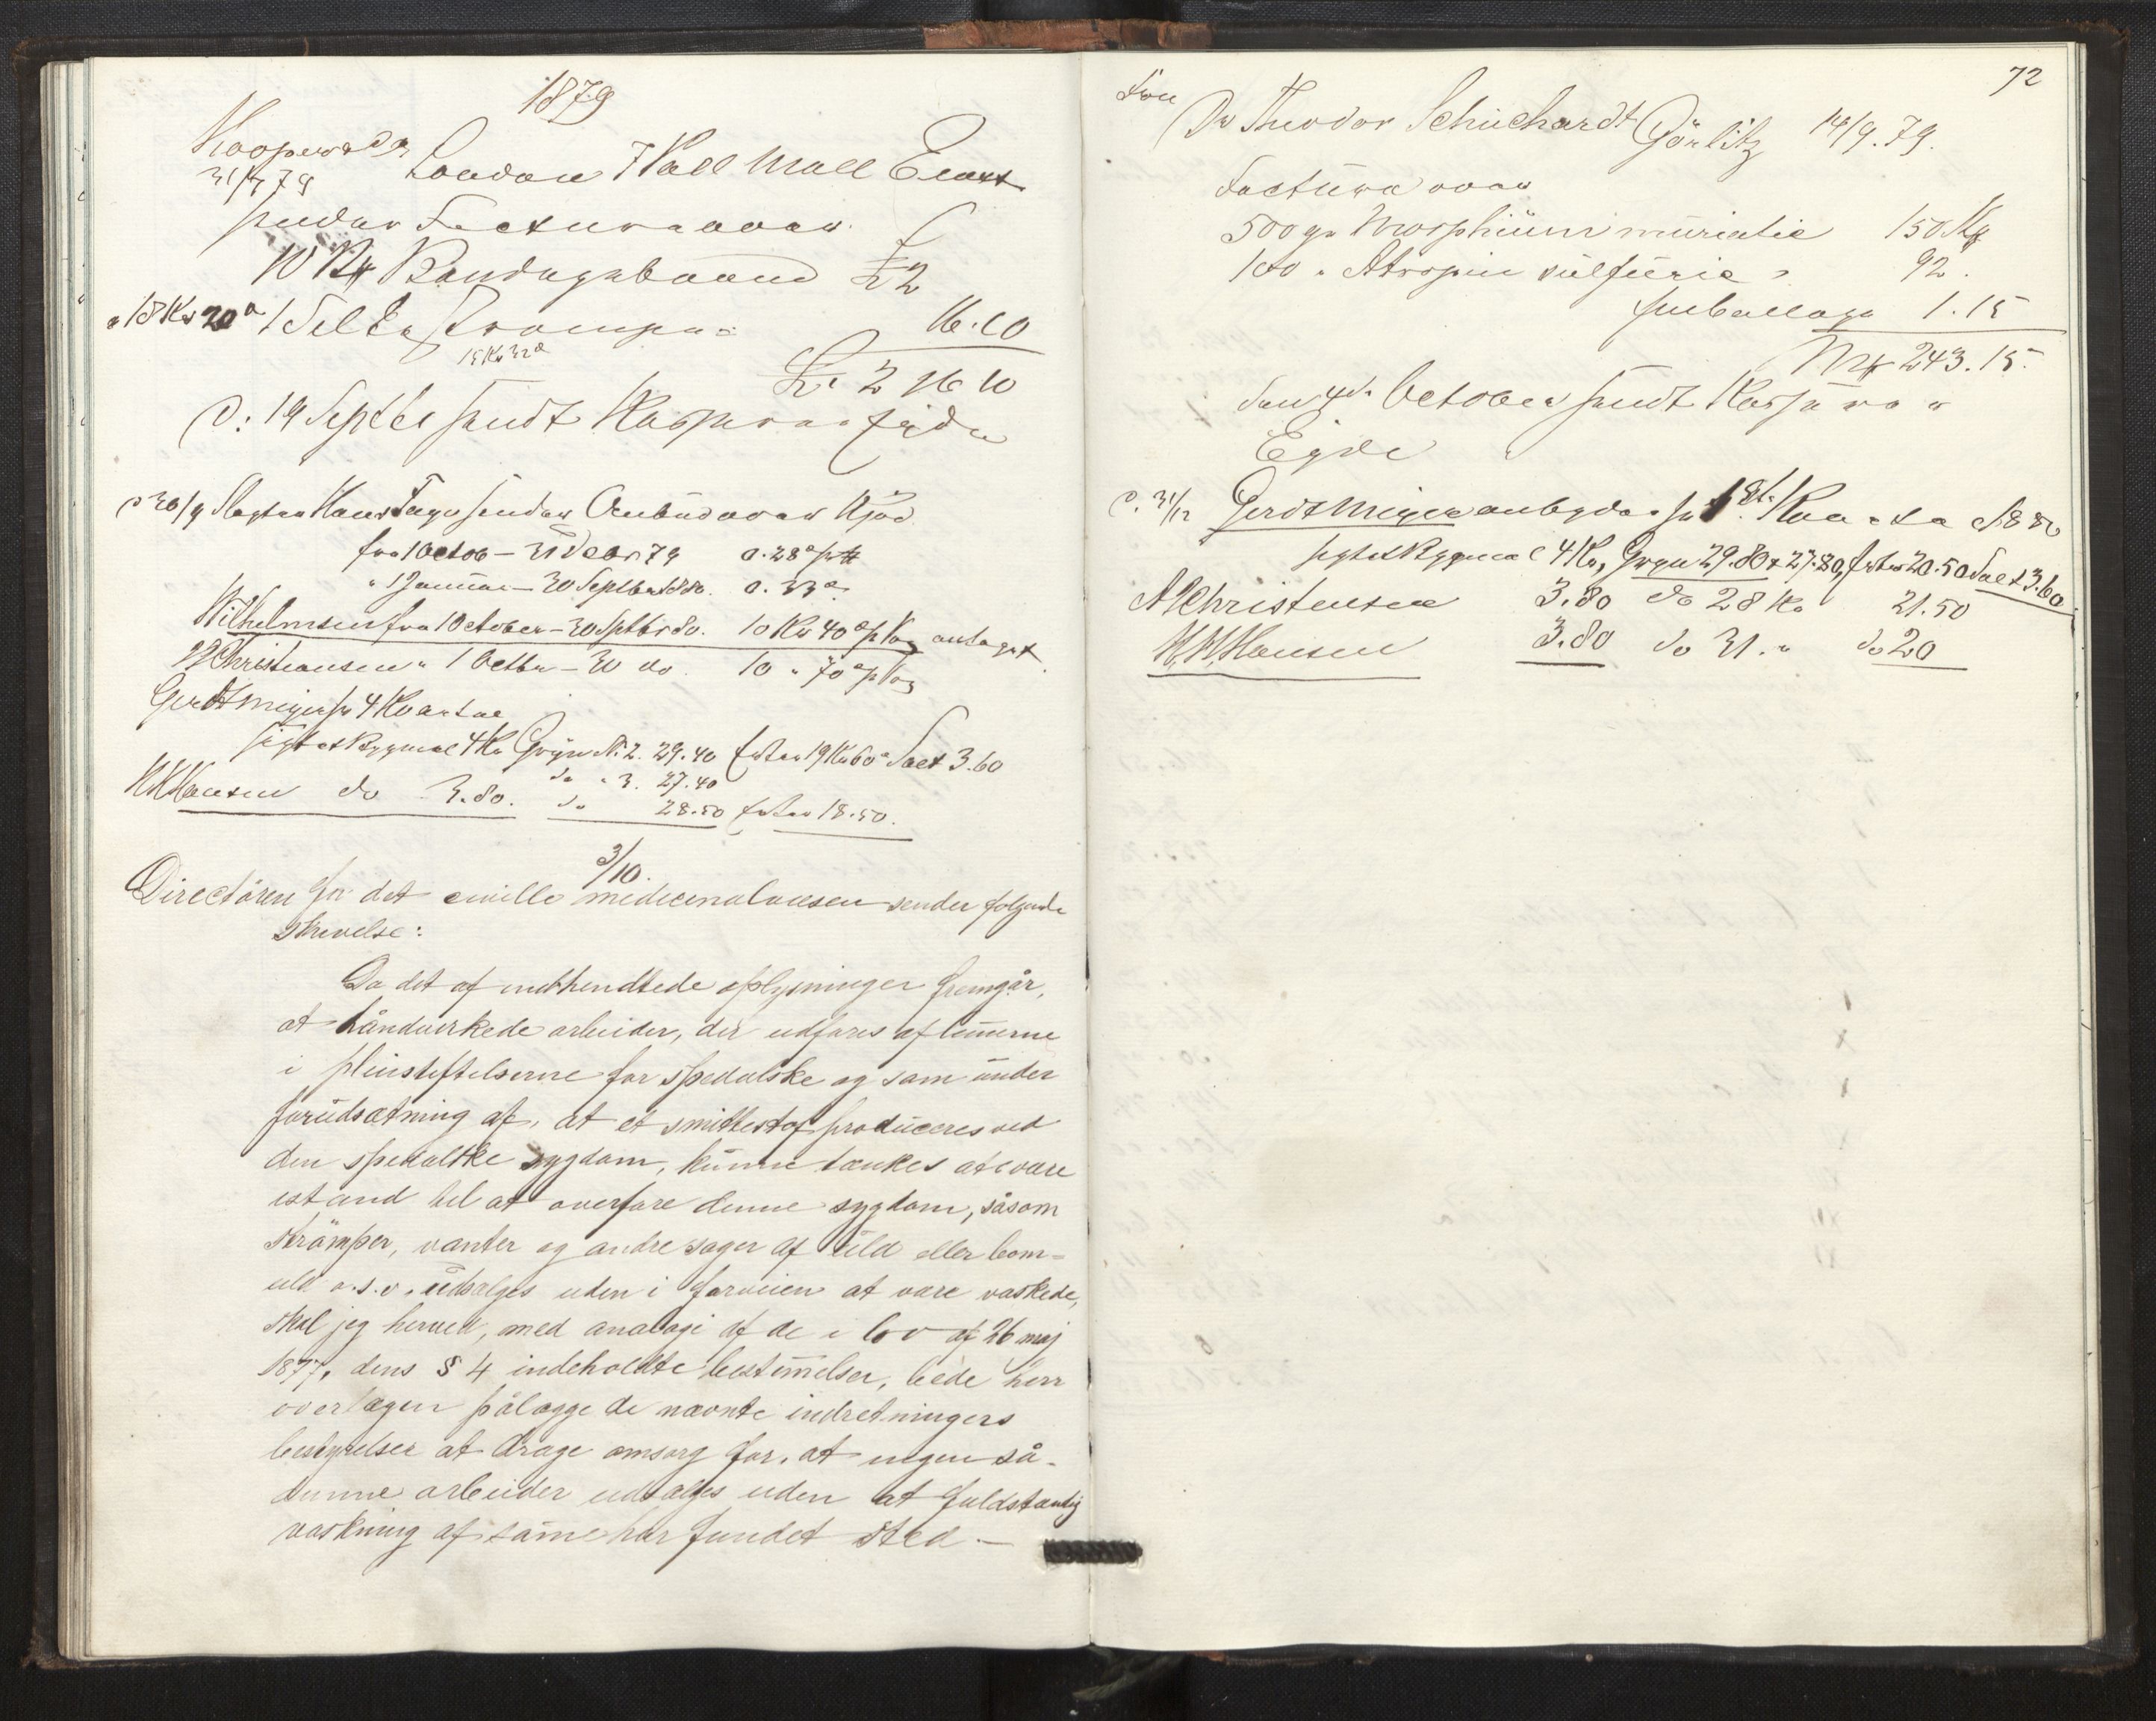 1879
London 7 Pall Mall East
31/7 79
sender Factura over
10 Bandagebaand £ 2
a 18 Kr 20 ø 1 Silke strømpe 16.10
15 Kr 32 ø
£. 2 16 10
D: 19 Septbr sendt Kasserer Eide
D 30/9 Slagter Hans Fage sender Anbud over Kjød
fra 1 Octob – 31 Decbr 79 a. 28 ø p
" 1 Januar – 30 Septbr 1880. a. 33 ø
Wilhelmsen fra 1 October – 30 Sptbr 80. 10 Kr 40 ø p Vog antaget
Christiansen " 1 Octbr – 30 do. 10 " 70 ø p Vog
Gerdt Meyer for 4 Kvartal
sigtet Bygmel 4 Kr, Gryn No 2. 29.40 Erter 19 Kr 60 ø Salt 3.60
do " 3. 27.40
Hansen do 3.80. do 28.50 Erter 18.50.
3/10.
Directören for det civille medicinalvæsen sender følgende
skrivelse:
Da det af indhendtede oplysninger fremgår,
at håndverkede arbeider, der udføres af lemerne
i pleiestiftelserne for spedalske og som under
forudsætning af, at et smittestof produceres ved
den spedalske sygdom, kunne tænkes at være
istand til at overføre denne sygdom, såsom
strömper, vanter og andre sager af uld eller bom=
uld o.s.v. udsælges uden i forveien at være vaskede,
skal jeg herved, med analogi af de i lov af 26 maj
1877, dens § 4 indeholdte bestemelser, bede herr
overlægen pålægge de nævnte indretningers
bestyrelser at drage omsorg for, at ingen så-
danne arbeider udsælges uden at fuldstændig
vaskning af same har fundet sted —
72
Fra
Dr Theodor Schuchardt Görlitz 14/9.79.
Factura over
500 gr Morphium muriatic 150 Mk
100 " Atropin sulfuric " 92.
Emballage 1.15
Mk 243.15.
Den 4de October sendt Kasserer
Eide
D. 31/12 Gerdt Meyer anbyder for 1st Kvartal 1880
sigtet Bygmel 4 Kr, Gryn 29.80 & 27.80, Erter 20.50 Salt 3.60
A Christensen 3.80 do 28 Kr 21.50
Hansen 3.80 do 31. " do 20